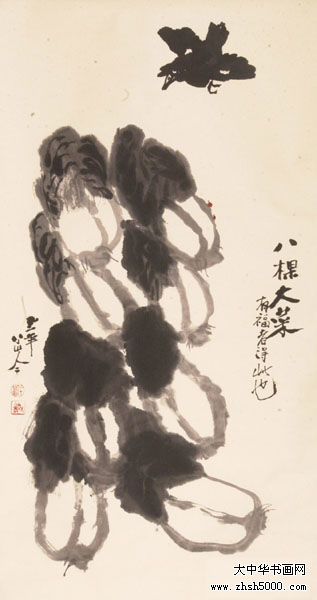 八棵大菜
有福者得此也
大中华书画网
www.zhsh5000.com